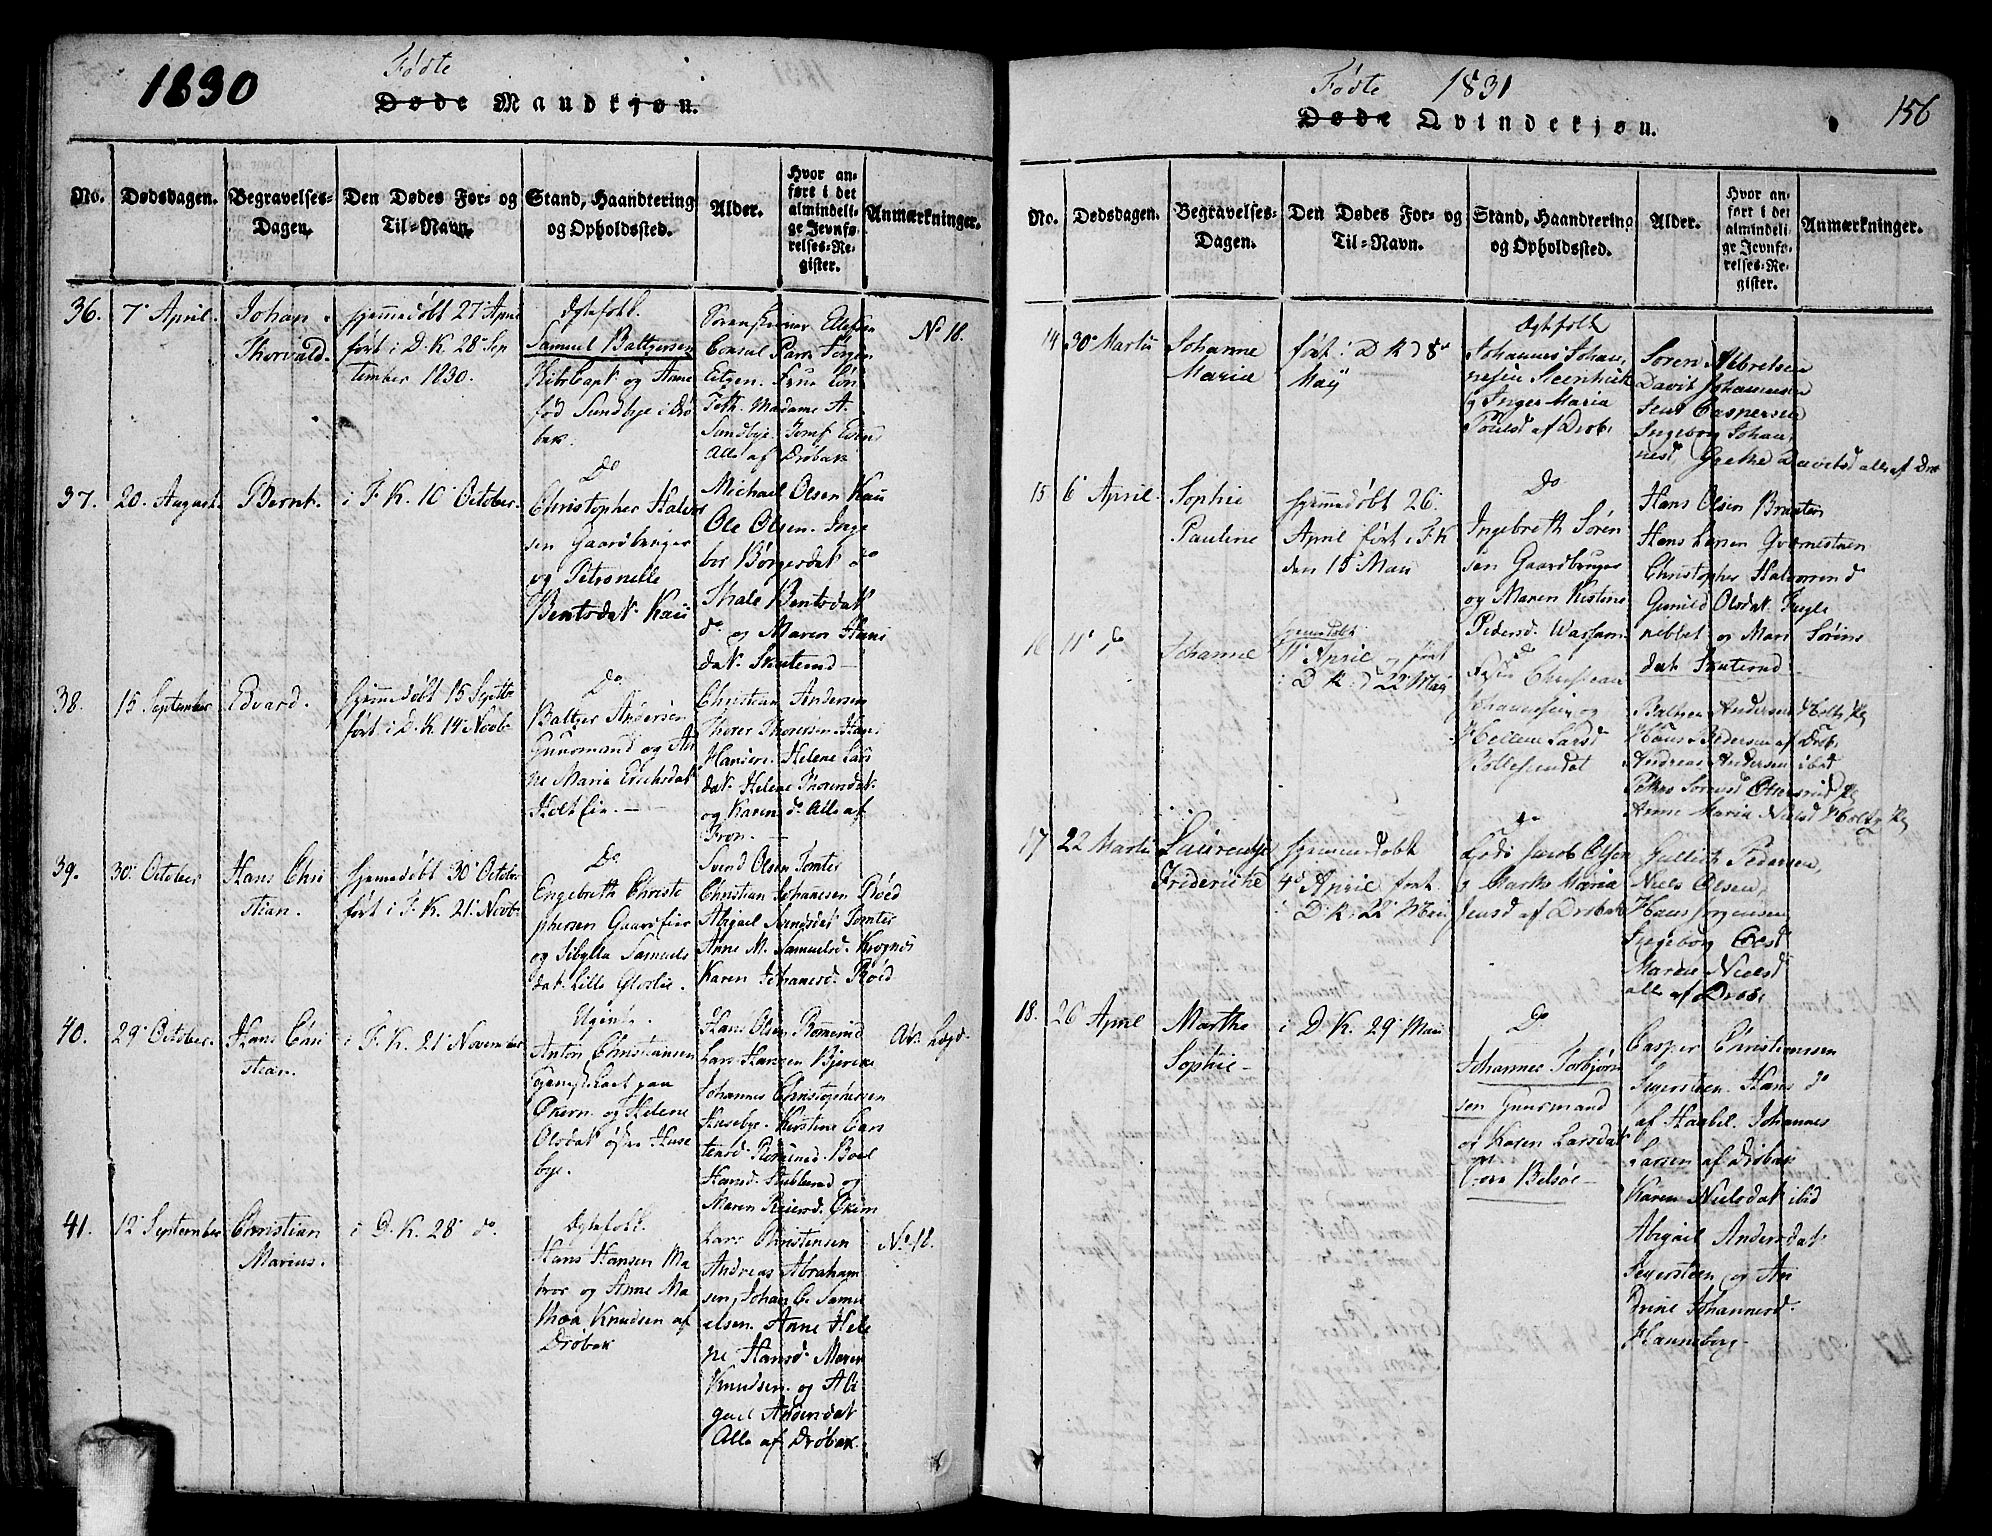 1830
Fødte
Døde Mandkjøn.
No.
Dødsdagen.
Begravelses-
Dagen.
Den Dødes For- og
Til-Navn.
Stand, Haandtering
og Opholdssted.
Alder.
Hvor an-
ført i det
almindeli-
ge Jevnfø-
relses-Re-
gister.
Anmærkninger.
36.
7 April.
Johan
Thorvald.
hjemmedøbt 27 Apr
ført i D. K 28 Sep
tember 1830.
Ægtefolk.
Samuel Baltzersen
og Anne
fød Sundbye i Drø
bak.
Consul Parr
Madame A.
Sundbye.
Alle af Drøbak
No 18.
37.
20. August.
Bernt.
i F. K. 10 October.
Do
Christopher Halvor
sen Gaardbruger
og Petronelle
Bentsdat. Kaii
Michael Olsen Kaii
Ole Olsen. Inge
bor Børgersdat do
Thale Bentsdat
do og Maren Hans
dat. Skuterud
38.
15 September
Edvard.
hjemmedøbt 15 Septb
ført i D. K 14 Novb
Do
Baltzer Andersen
Huusmand og An
ne Maria Erichsdat
Holt Eie.
Christian Andersen
Thorer Thoresen. Han
Hansen. Helene Lars
dat. Helene Thorendat
og Karen do Alle af
Fron.
39.
30 October
Hans Chri
stian.
hjemmedøbt 30 Octobr
ført i F. K. 21 Novb
Do
Engebreth Christo
phersen Gaardseier
og Sibylla Samuels
dat. Lille Glorlie.
Svend Olsen Tomter
Christian Johannesen Røed
Abigael Svendsdat Tomter
Anne M. Samuelsd. Krognes
Karen Johannesd. Røed
40.
29 October.
Hans Chri
stian.
i F. K. 21 November
Uægte.
Anton Christiansen
paa
Økern. og Helene
Olsdat Huse
bye.
Hans Olsen Romerud
Lars Hansen Bjerke
Johannes Christophersen
Husebye. Kirstine Cars
tensd. Romerud. Boel
Hansd. Stublerud og
Maren Reiersd. Økern
Av. Lægd.
41.
12 September
Christian
Marius.
i D. K. 28 do.
Ægtefolk.
Hans Hansen Ma
tros og Anne Ma
thea Knudsen af
Drøbak
Lars Christensen
Andreas Abraham
sen, Johan C. Samu
elsen. Anne Hele
ne Hansd. Maren
Knudsen. og Abi
gael Andersdat
Alle af Drøbak.
No 18.
Fødte
1831
156
Døde Qvindekjøn.
No.
Dødsdagen.
Begravelses-
Dagen.
Den Dødes For- og
Til-Navn.
Stand, Haandtering
og Opholdssted.
Alder.
Hvor an-
ført i det
almindeli-
ge Jevnfø-
relses-Re-
gister.
Anmærkninger.
14
30 Martii
Johanne
Maria
ført i D K d 8de
Maij
Ægtefolk
Johannes Johan
nesen Steenhuk
og Inger Maria
Poulsd af Drøb.
Søren Albretsen
Davit Johannesen
Jens Caspersen
Ingeborg Johan
nesd, Grethe Davitsd alle af Drø
15
6 April.
Sophie
Pauline
hjemmedøbt 26.
April ført i F. K
den 15 Maii
Do
Ingebreth Søren
sen Gaardbruger
og Maren Kistine
Pedersd.
Hans Olsen Braaten
Hans Larsen
Christopher Halvorsend
Gunild Olsdat. Fugle
nebbet og Mari Sørens
dat Skuterud
16
11 do
Johanne
hjemmedøbt
11 April og ført
i D K: d 22 Maij
Do
Christian
Johannesen og
Hellene Larsd
Baltzer Andersen Holts Pl
Hans Pedersen af Drøb.
Andreas Andersen ibid
Anne Maria Nielsd Holts Pl
17
22 Martii
Laurentze
Friderikke
hjemmedøbt
4de April ført
i D. K: 22 Maii
do
Lods Jacob Olsen
og Marthe Maria
Jensd af Drøbak
Hallich Pedersen,
Niels Olsen,
Hans Jørgensen
Ingeborg Olesd
Marthe Nielsd
alle af Drøb.
18.
26 April
Marthe
Sophie
i D. K. 29 Maii
Do.
Johannes Torbjørn
sen Huusmand
og Karen Larsdat
Belsøe
Casper Christianssen
Segersteen. Hans do
af Haabøl. Johannes
Larsen af Drøbak
Karen Nielsdat ibid
Abigael Andersdat
Segersteen og An
drine Johannesd.
Hanneborg